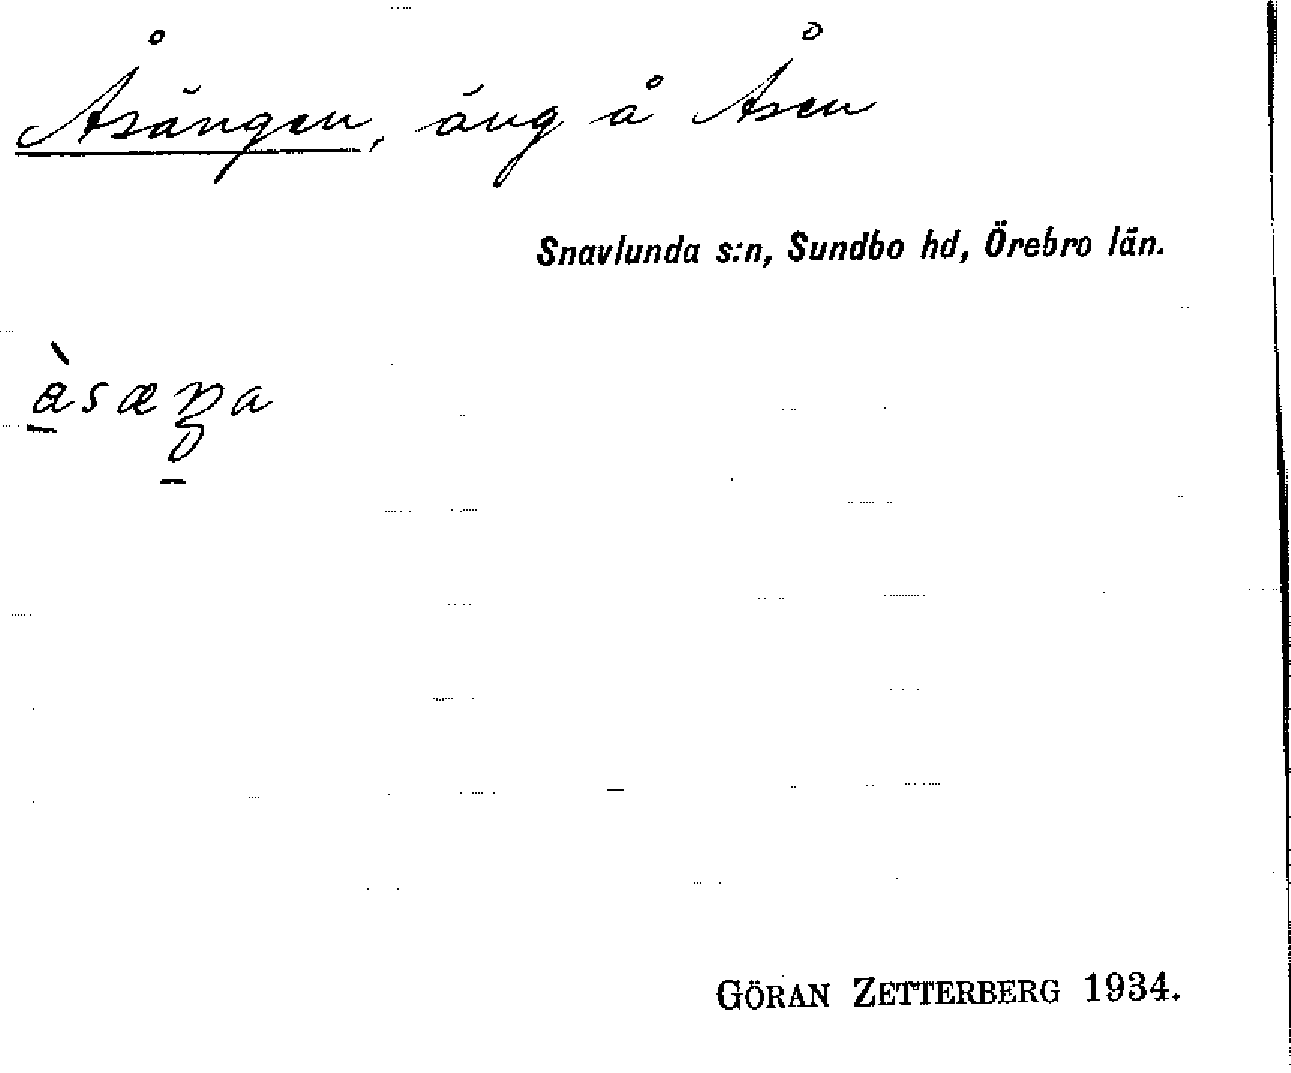 Åsängen, äng å Åsen
Snavlunda s:n, Sundbo hd, Örebro län.
GÖRAN ZETTERBERG 1934.